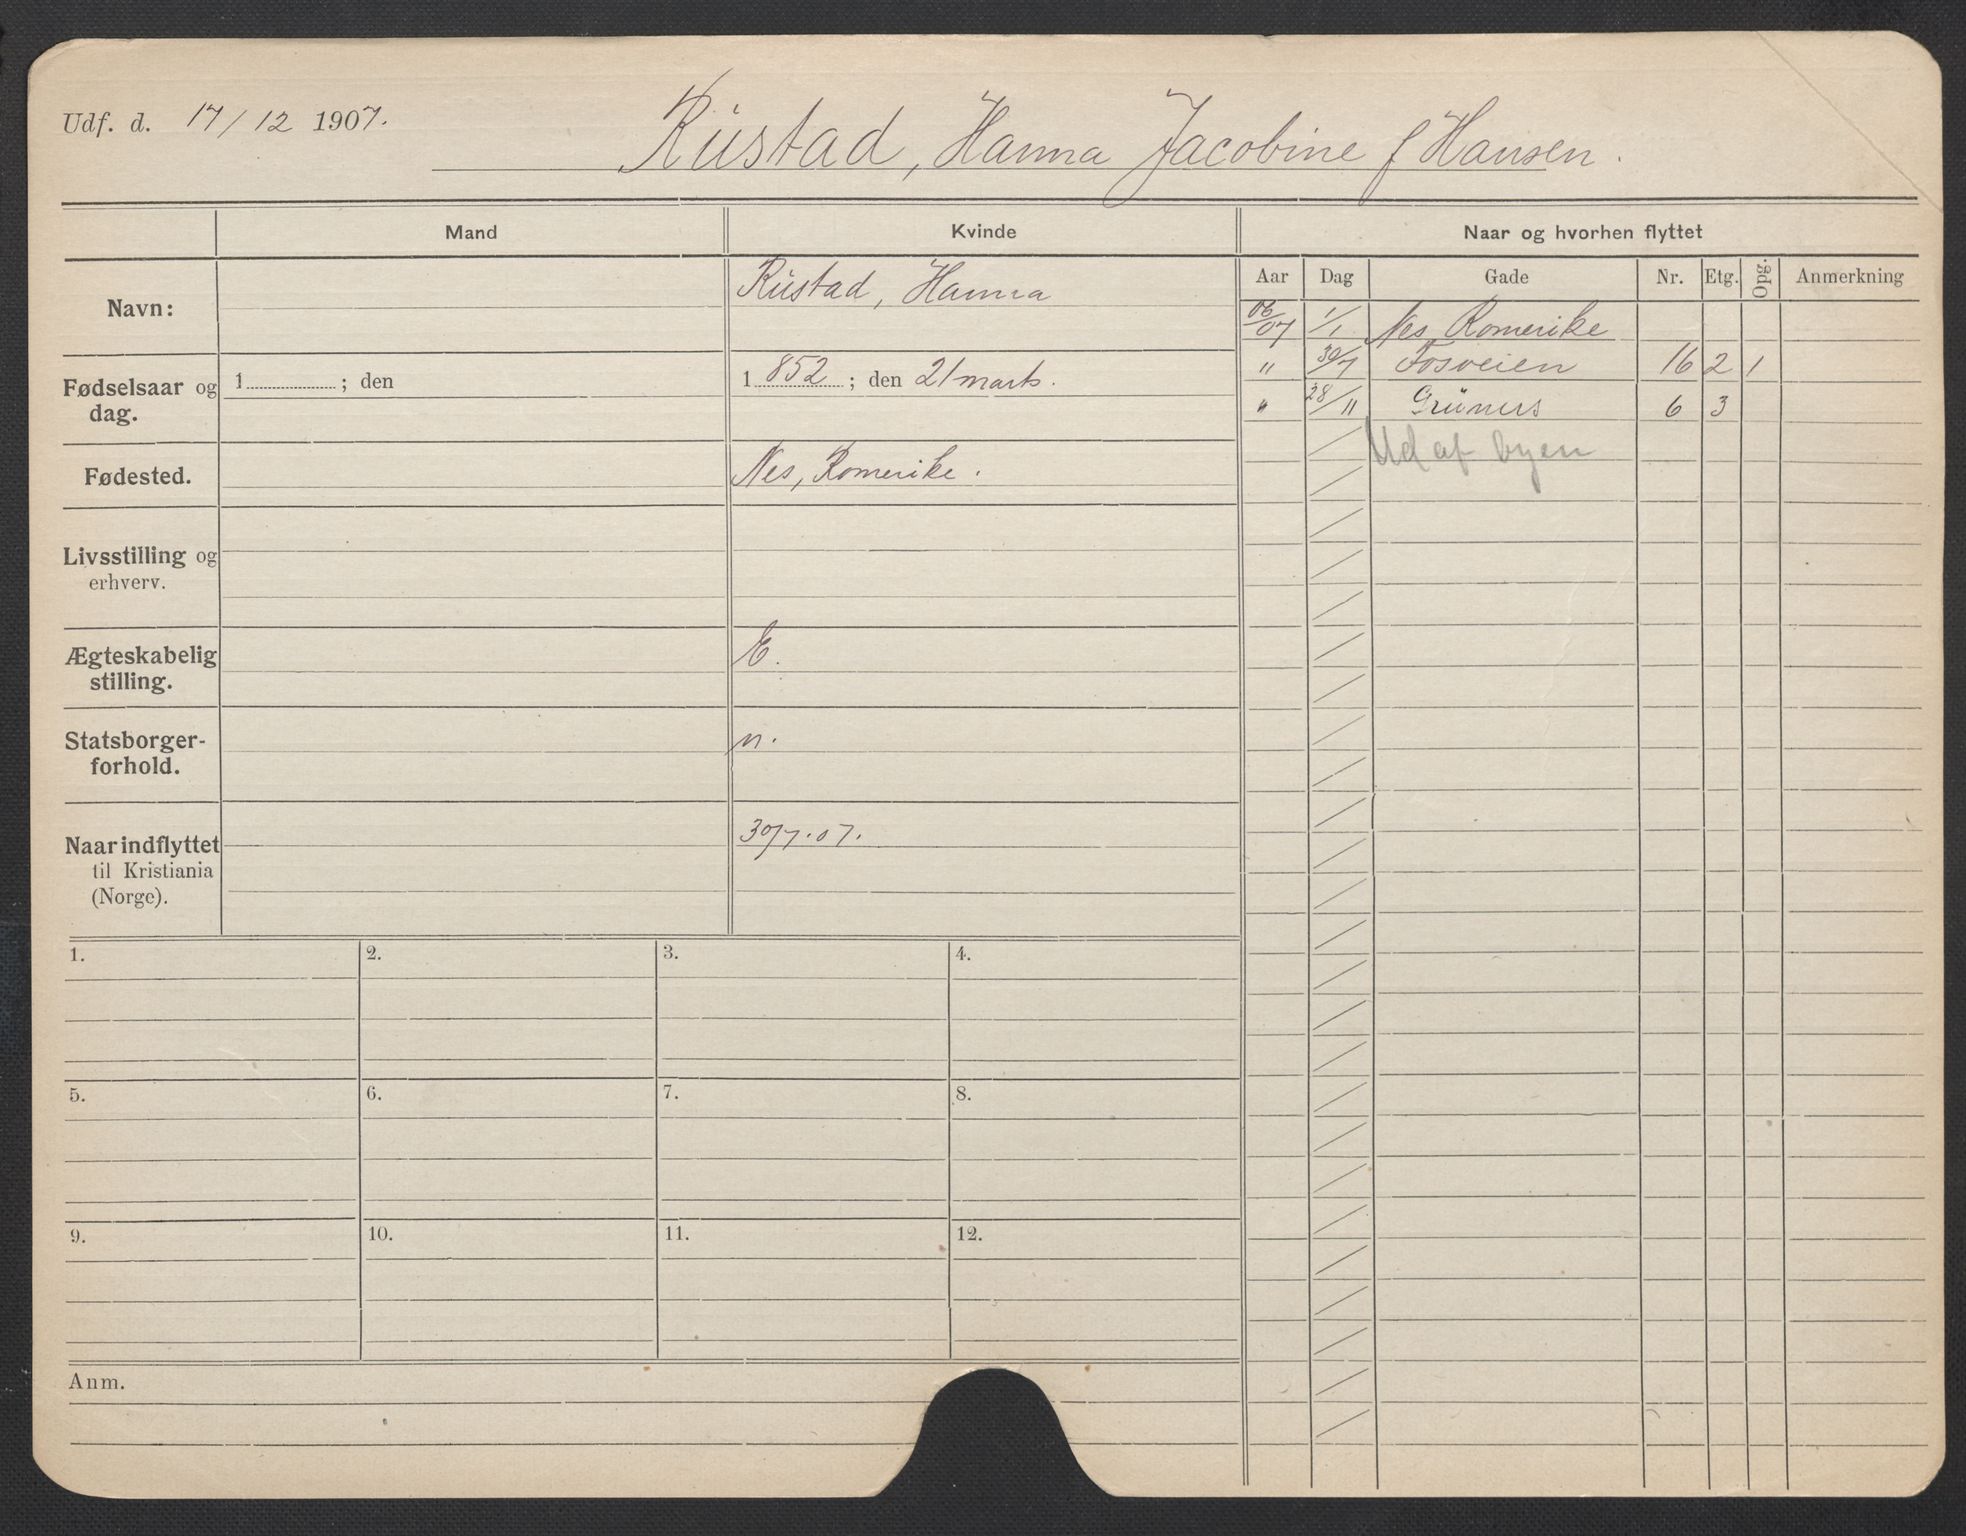 Udf. d. 17/12 1907.
Rüstad, Hanna Jacobine f Hansen.
Mand Kvinde Naar og hvorhen flyttet
Aar Dag Gade Nr. Etg. Opg. Anmerkning
Navn: Rüstad, Hanna
06/07 1/1 Nes Romerike
" 30/7 Fosveien 16 2 1
" 28/11 Grüners 6 3
Ud af byen
Fødselsaar og dag. 1 ; den 1 852 ; den 21 marts.
Fødested. Nes, Romerike.
Livsstilling og
erhverv.
Ægteskabelig
stilling. E.
Statsborger-
forhold. n.
Naar indflyttet
til Kristiania
(Norge). 30/7.07.
1. 2. 3. 4.
5. 6. 7. 8.
9. 10. 11. 12.
Anm.